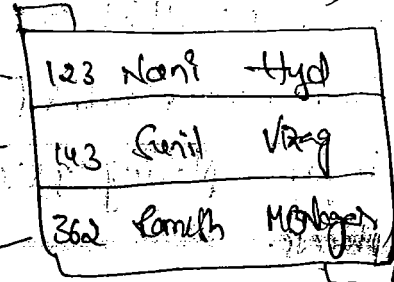 123 Nani Hyd
143 Sunil Vizag
362 Ramesh Manager